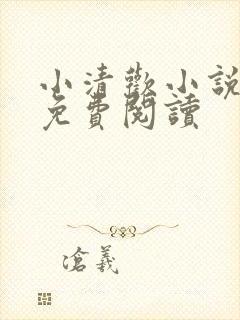 小清歡小說
免費閱讀
滄義